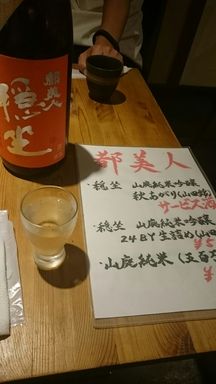 都美人
穏坐
都美人
・穏坐 山廃純米吟醸
秋あがり(山田錦
サービス酒
・穏坐 山廃純米吟醸
24BY生詰め(山田
¥5
・山廃純米(五百万
¥